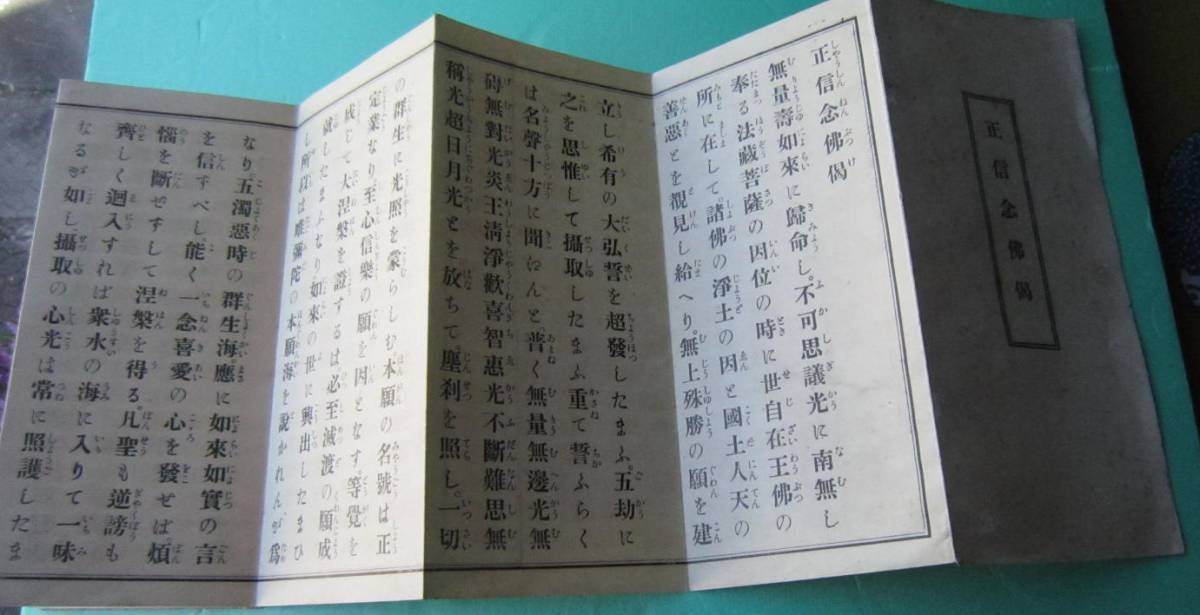 正信念佛偈
正信念佛偈
無量壽如來に歸命し。不可思議光に南無し
奉る法藏菩薩の因位の時に世自在王佛の
所に在して。諸佛の淨土の因と國土人天の
善惡とを覩見し給へり。無上殊勝の願を建
立し希有の大弘誓を超發したまふ。五劫に
之を思惟して攝取したまふ重て誓ふらく
は名聲十方に聞ゑんと。普く無量無邊光無
碍無對光炎王淸淨歡喜智惠光不斷難思無
稱光超日月光とを放ちて塵刹を照し。一切
の群生に光照を蒙らしむ本願の名號は正
定業なり至心信樂の願を因となす等覺を
成じて大涅槃を證するは必至滅渡の願成
就したまふなり如來の世に興出したまひ
し所以は唯彌陀の本願海を說かれんが爲
なり五濁惡時の群生海應に如來如實の言
を信ずべし能く一念喜愛の心を發せば煩
惱を斷ぜずして涅槃を得る凡聖も逆謗も
齊しく迴入すれば衆水の海に入りて一味
なるが如し攝取の心光は常に照護したま